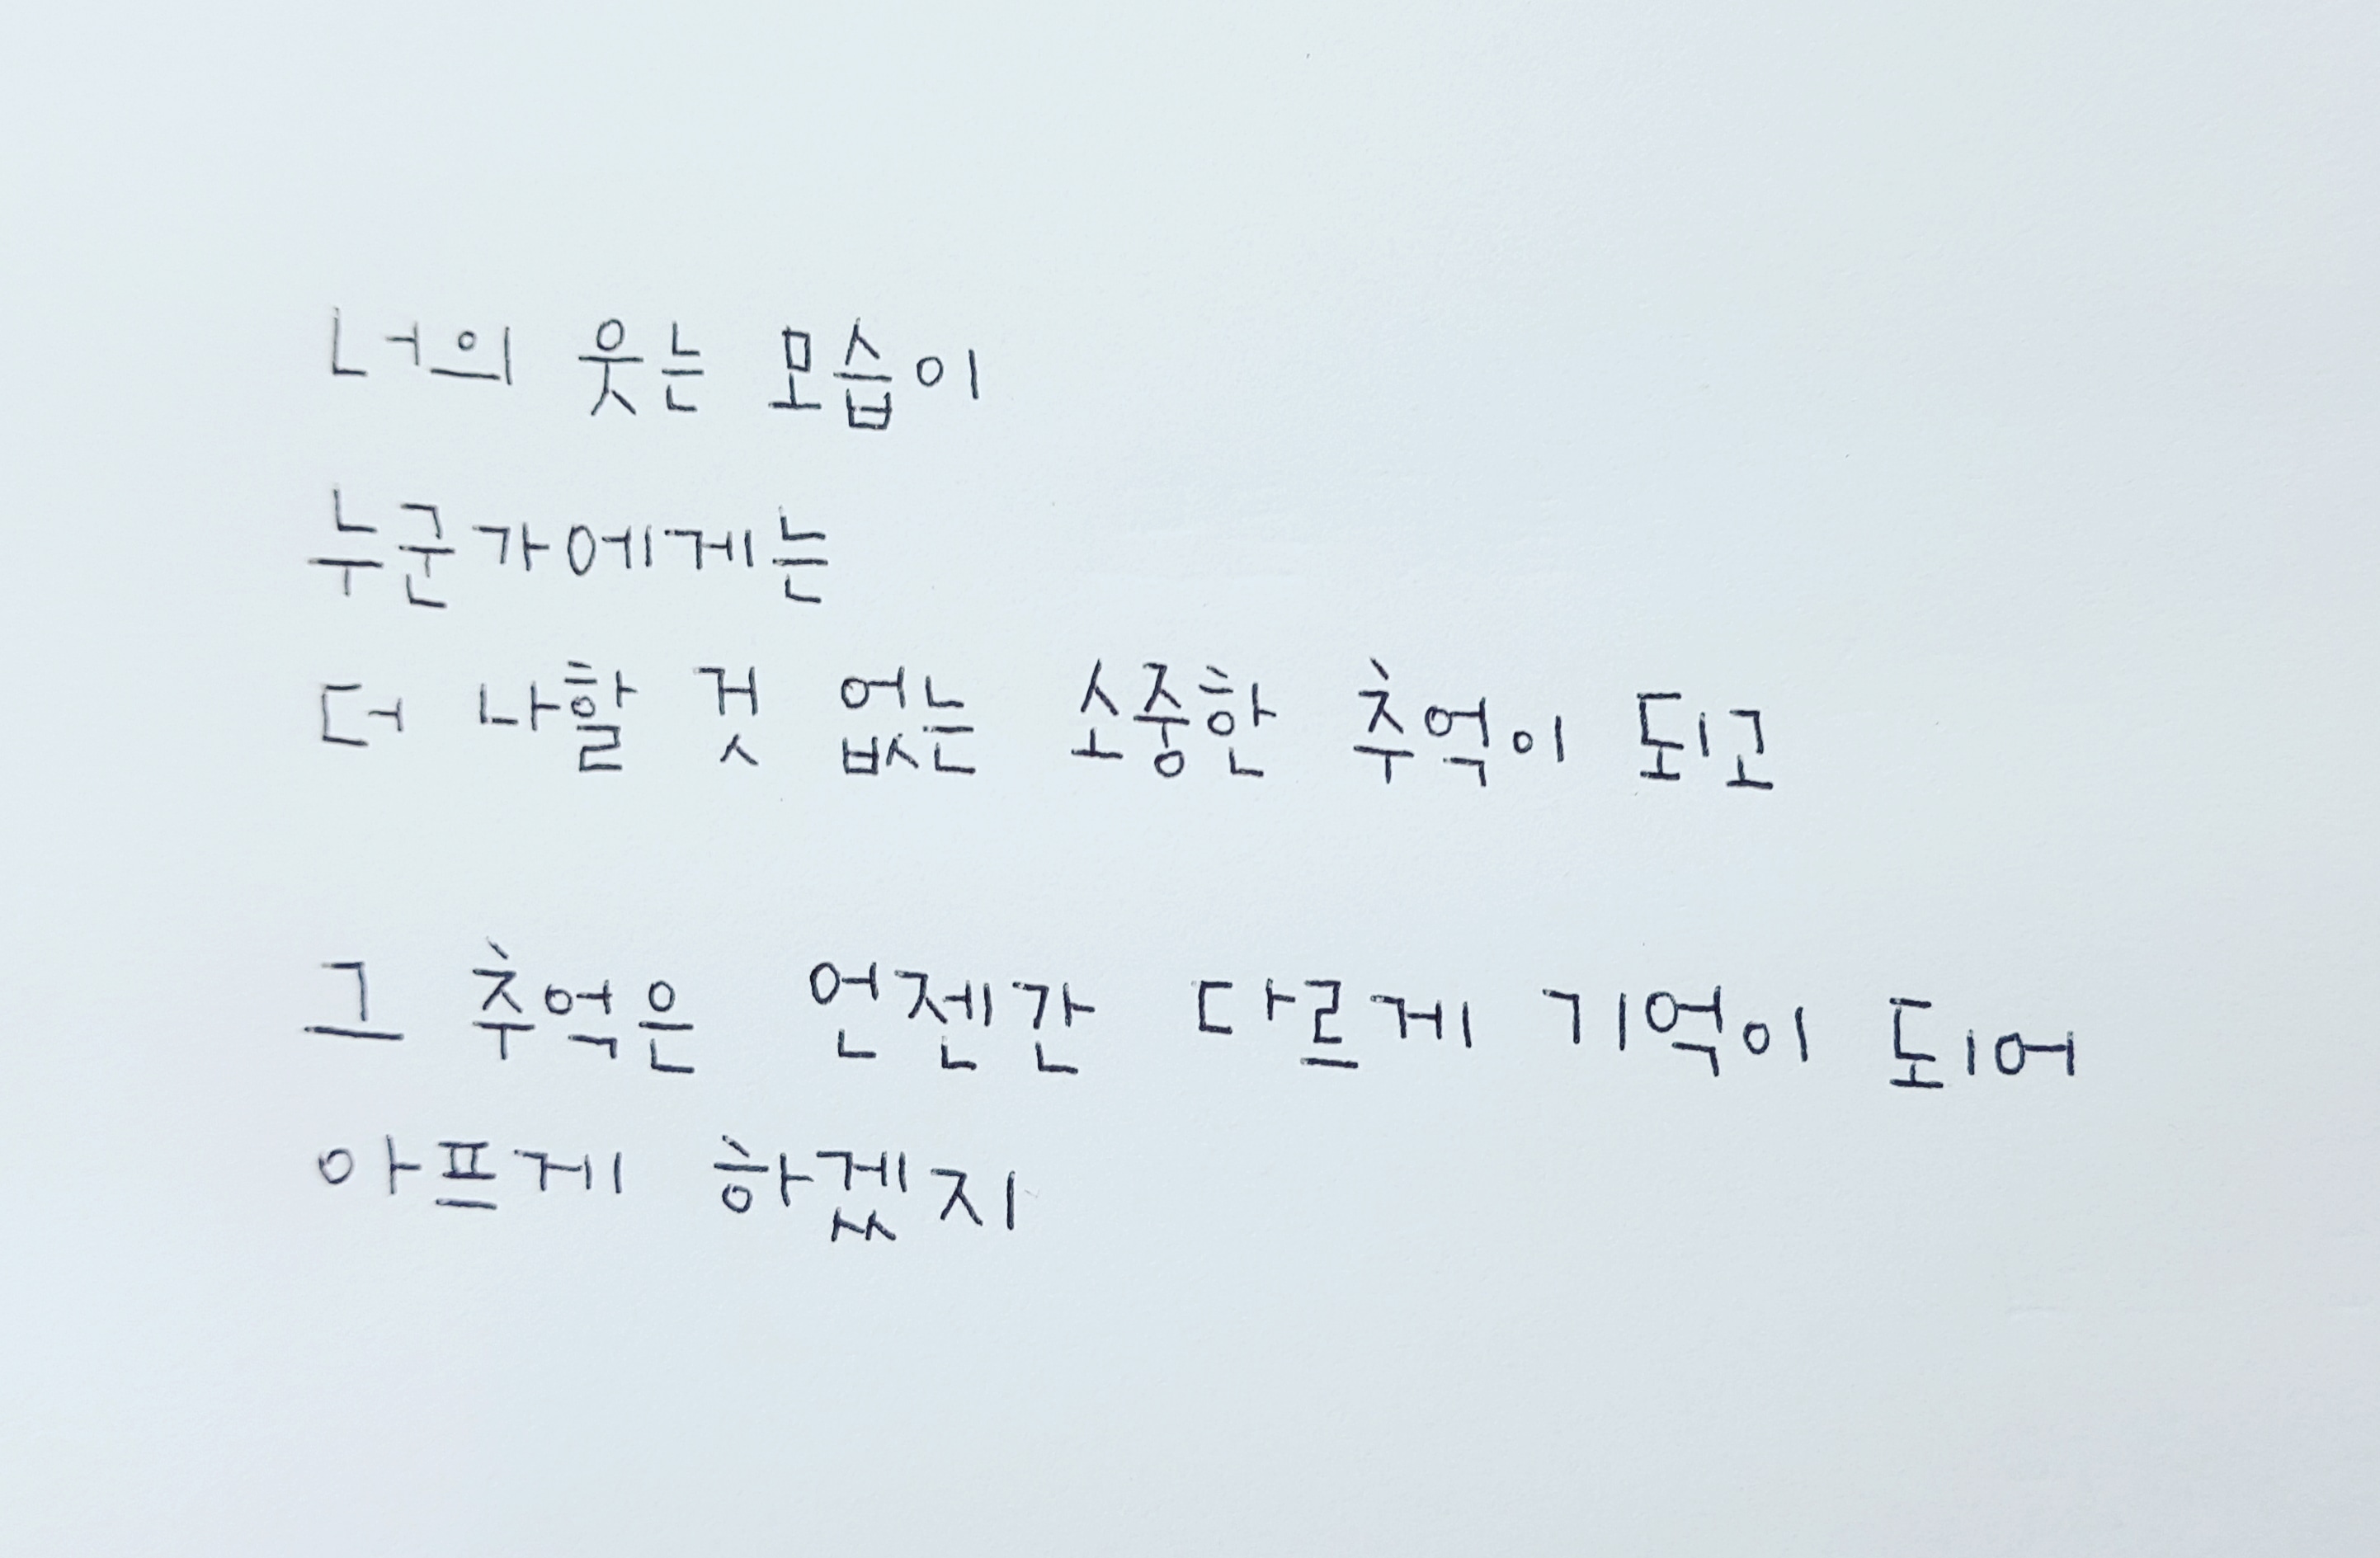 너의 웃는 모습이
누군가에게는
더 나할 것 없는 소중한 추억이 되고
그 추억은 언젠간 다르게 기억이 되어
아프게 하겠지